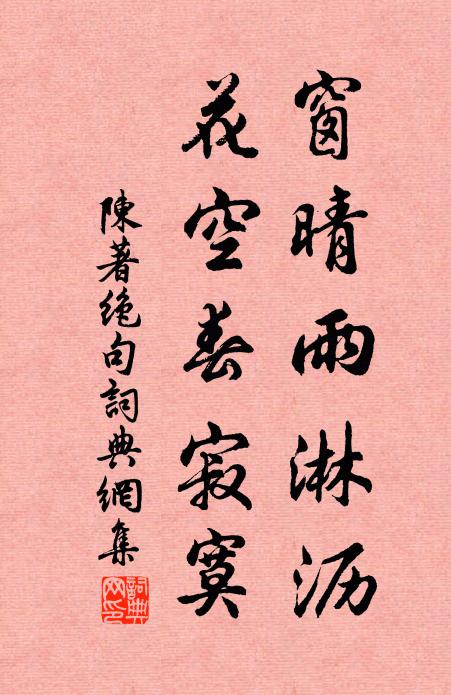 窗晴雨淋沥
花空春寂寞
陳著绝句詞典網集
詞典网印